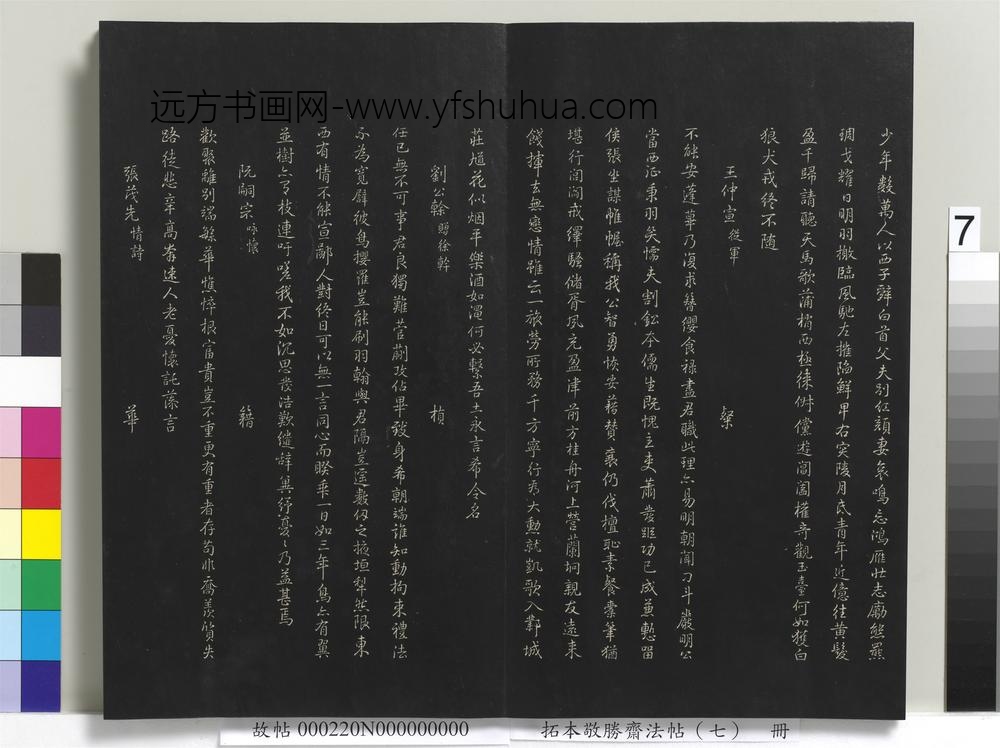 远方书画网-www.yfshuhua.com
少年數萬人以西子舜白首父夫別紅頏妻哀鳴忘鴻雁壯志勵熊羆
琱戈耀日明羽檄臨風馳左摧陷鮮卑右突陵月底青年近億往黃髮
盈千歸請聽天馬歌蒲梢西極徠倘儻遊閶闔權奇觀玉臺何如獲白
狼犬戎終不隨
王仲宣從軍 粲
不能安蓬蓽乃復求簪纓食祿盡君職此理亦易明朝聞刁斗嚴明公
當西征秉羽矣懦夫割鉛本儒生既愧立吏蕭發蹤功已成蕪慙留
侯張坐謀帷幄稱我公智勇恢安藉贊襄仍伐檀恥素餐橐筆猶
堪行誾誾戒繹騷儲胥夙充盈津前方桂舟河上營蘭坰親友遠來
餞揮去無戀情雖云一旅勞所務千方寧行矣大勳就凱歌入鄴城
莊馗花似烟平樂酒如澠何必繫吾土永言希令名
劉公幹贈徐幹 楨
任已無不可事君良獨難菅蒯攻佔畢致身希朝端誰知動拘束禮法
不為寬辟彼鳥攖羅豈能刷羽翰與君隔豈遙數仞之掖垣犁然限東
西有情不能宣鄙人對終日可以無一言同心而睽乖一日如三年鳥亦有翼
並樹亦有枝連吁嗟我不如沉思發浩歎繾辭冀紓憂憂乃益甚焉
阮嗣宗詠懷 籍
歡聚離別端繁華憔悴根富貴豈不重更有重者存苟非喬羨質失
路徒悲辛高奔速人老憂懷託藻言
張茂先情詩 華
7
故帖 000220N000000000 拓本敬勝齋法帖（七） 冊